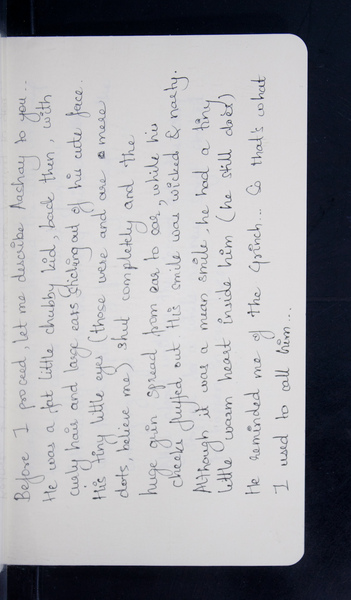 Before I proceed, let me describe Aachay to you...
He was a fat little chubby kid, back then, with
curly hair and large ears sticking out of his cute face.
His tiny little eyes (those were and are a mere
dots, believe me) shut completely and the
huge grin spread from ear to ear, while his
cheeks fluffed out. His smile was wicked & nasty.
Although it was a mean smile, he had a tiny
little warm heart inside him (he still does)
He reminded me of The Grinch... So that's what
I used to call him...